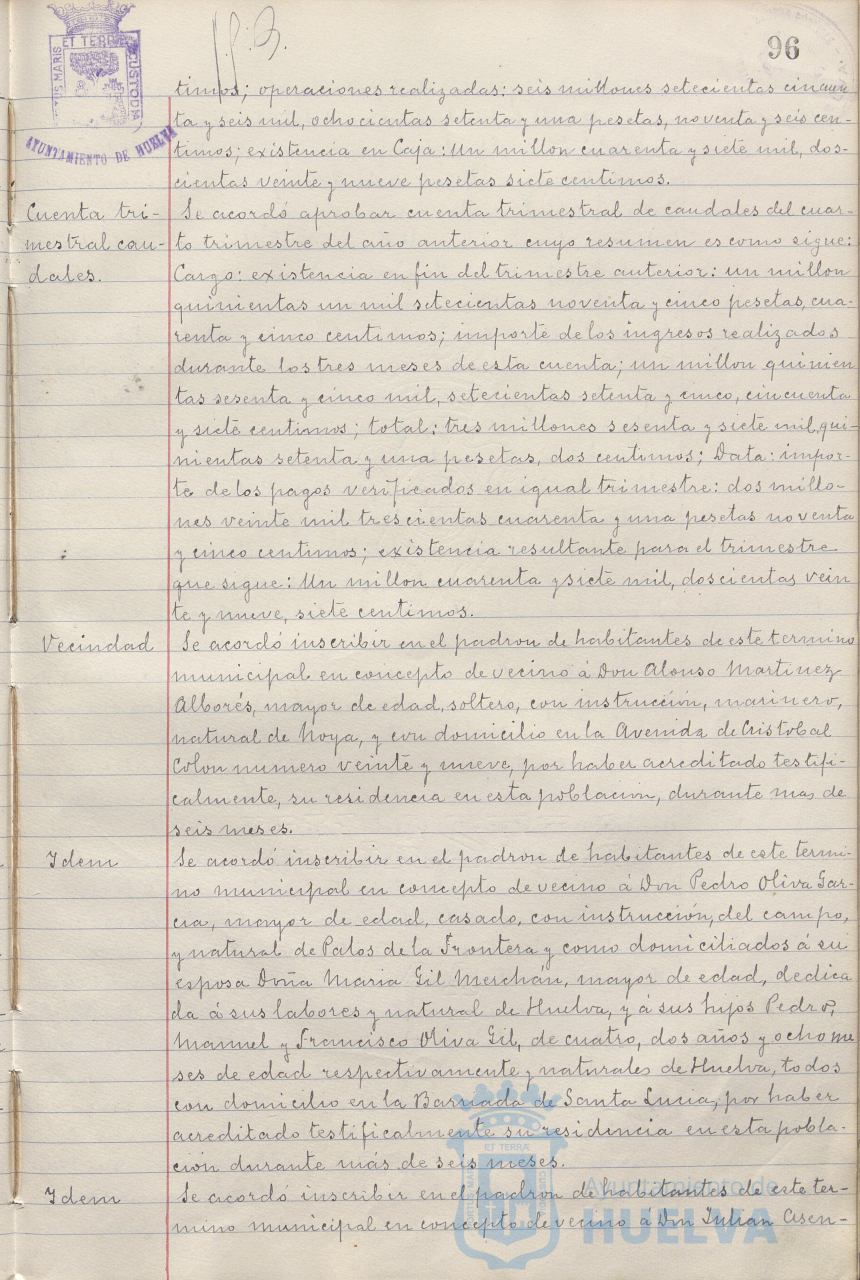 96
ET TERRE
MARIS
CUSTODIA
AYUNTAMIENTO DE HUELVA
timos; operaciones realizadas: seis millones setecientas cincuen
ta y seis mil, ochocientas setenta y una pesetas, noventa y seis cen-
timos; existencia en Caja: Un millon cuarenta y siete mil, dos-
cientas veinte y nueve pesetas siete centimos.
Cuenta tri-
mestral cau-
dales.
Se acordó aprobar cuenta trimestral de caudales del cuar-
to trimestre del año anterior cuyo resumen es como sigue:
Cargo: existencia en fin del trimestre anterior: un millon
quinientas un mil setecientas noventa y cinco pesetas, cua-
renta y cinco centimos; importe de los ingresos realizados
durante los tres meses de esta cuenta; un millon quinien
tas sesenta y cinco mil, setecientas setenta y cinco, cincuenta
y siete centimos; total: tres millones sesenta y siete mil, qui-
nientas setenta y una pesetas, dos centimos; Data: impor-
te de los pagos verificados en igual trimestre: dos millo-
nes veinte mil trescientas cuarenta y una pesetas noventa
y cinco centimos; existencia resultante para el trimestre
que sigue: Un millon cuarenta y siete mil, doscientas vein
te y nueve, siete centimos.
Vecindad
Se acordó inscribir en el padron de habitantes de este termino
municipal en concepto de vecino á Don Alonso Martinez
Alborés, mayor de edad, soltero, con instrucción, marinero,
natural de Noya, y con domicilio en la Avenida de Cristobal
Colon numero veinte y nueve, por haber acreditado testifi-
calmente, su residencia en esta población, durante mas de
seis meses.
Idem
Se acordó inscribir en el padron de habitantes de este termi-
no municipal en concepto de vecino á Don Pedro Oliva Gar-
cia, mayor de edad, casado, con instrucción, del campo,
y natural de Palos de la Frontera y como domiciliados á su
esposa Doña Maria Gil Merchán, mayor de edad, dedica
da á sus labores y natural de Huelva, y á sus hijos Pedro,
Manuel y Francisco Oliva Gil, de cuatro, dos años y ocho me
ses de edad respectivamente y naturales de Huelva, todos
con domicilio en la Barriada de Santa Lucia, por haber
acreditado testificalmente su residencia en esta pobla-
ción durante más de seis meses.
Idem
Se acordó inscribir en el padron de habitantes de este ter-
mino municipal en concepto de vecino á Don Julian Asen-
ET TERRE
Ayuntamiento de
HUELVA